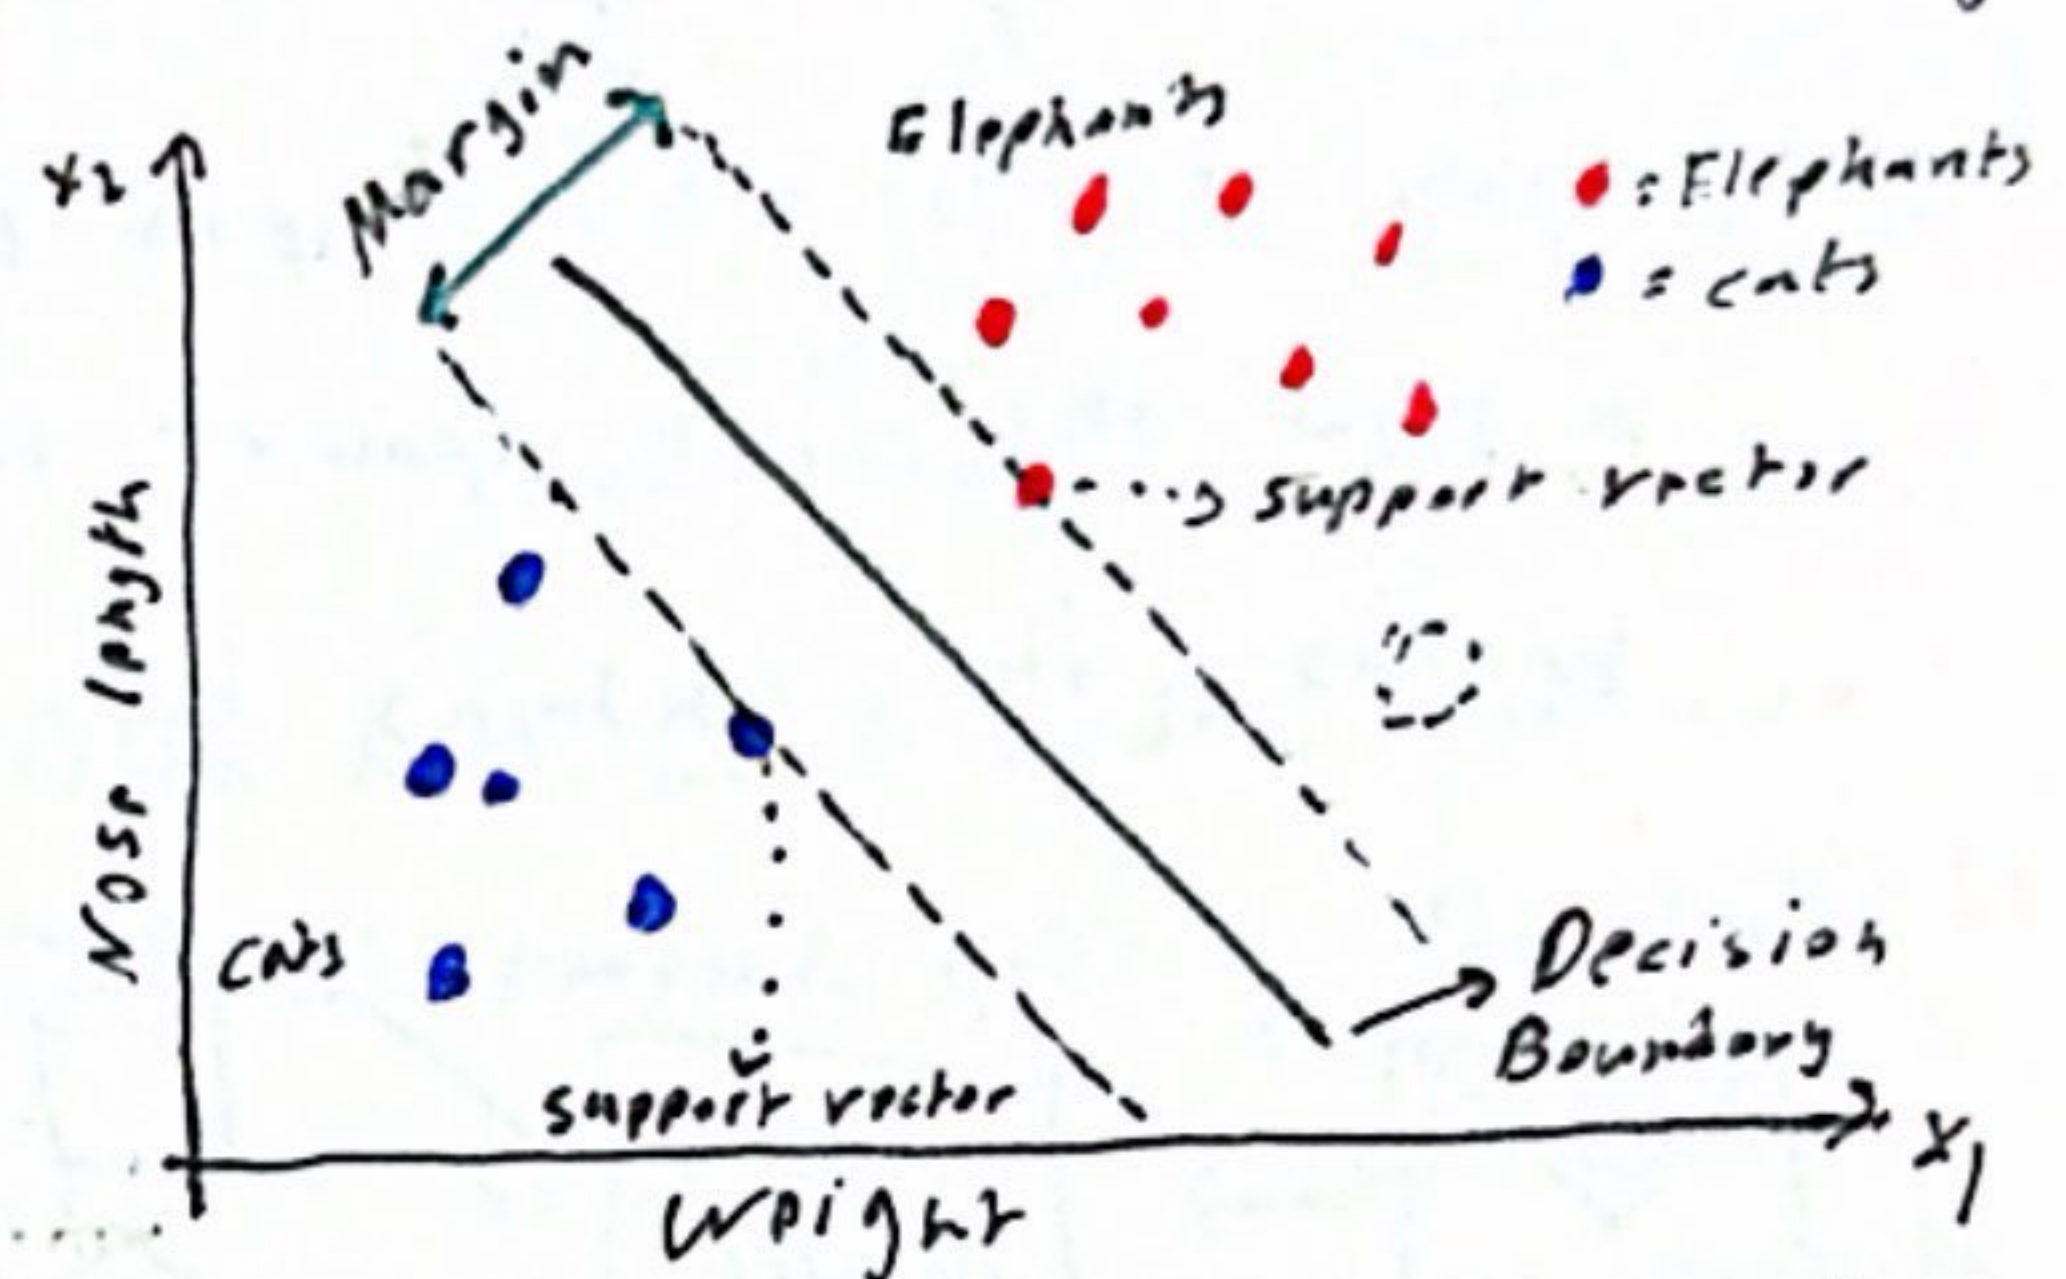 Margin
Elephants
x2
: Elephants
= cats
support vector
Nose length
cats
Decision
Boundary
support vector
x1
Weight